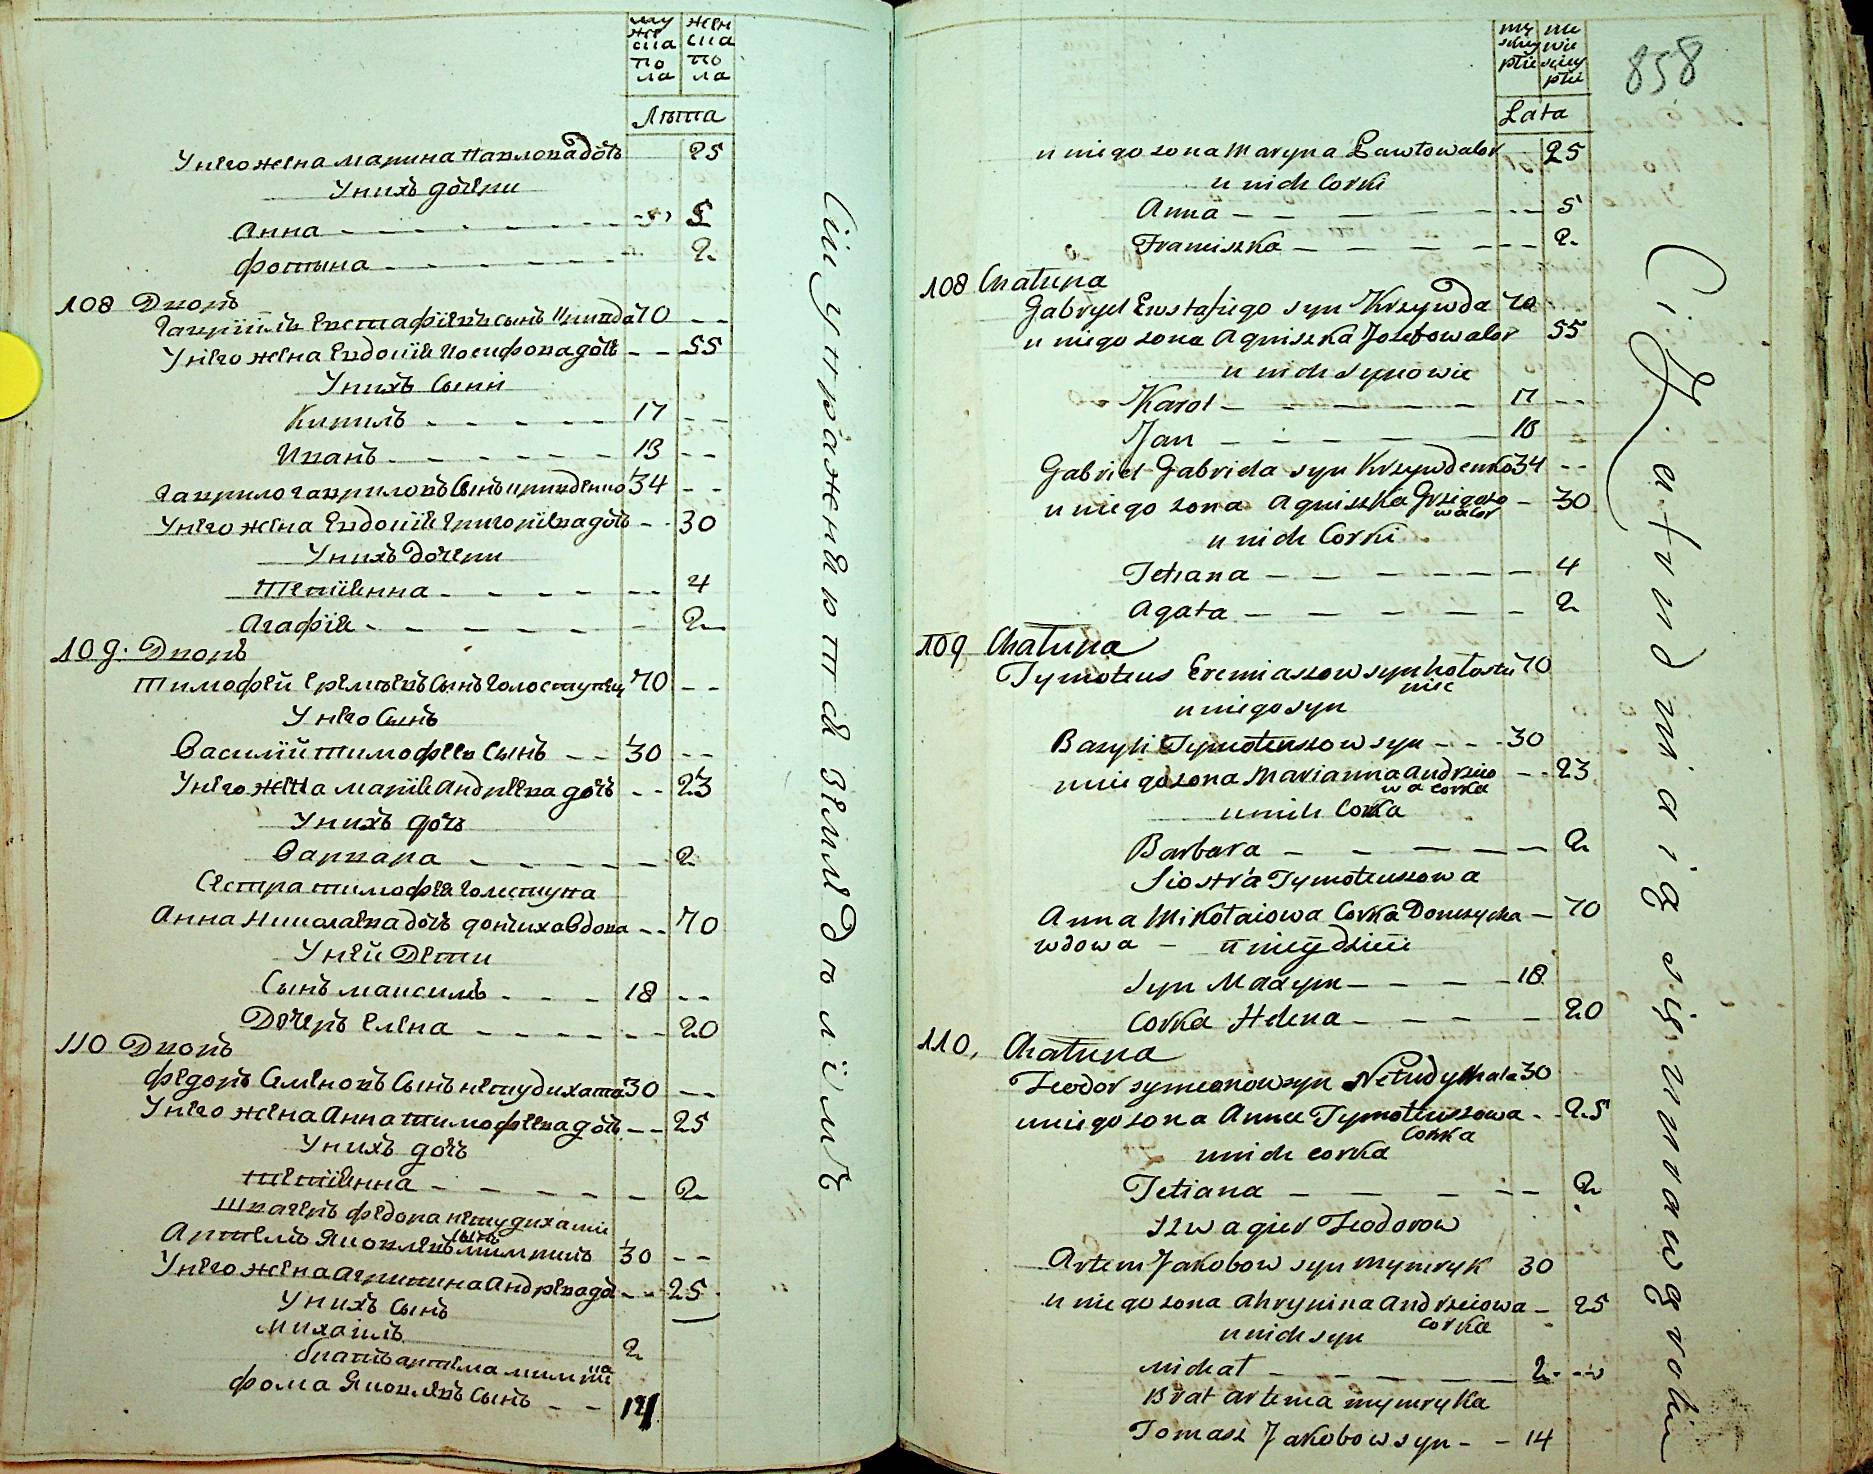 му
же
ска
по
ла
жен
ска
по
ла
Лѣта
У него жена марина павлова дочь 25
У нихъ дочери
Анна 5
фотина 2
108 Дворъ
Гавріилъ Евстафіевъ сынъ Кривда 70
У него жена Евдокія Иосифова дочь 55
У нихъ Сыни
Кирилъ 17
Иванъ 13
гаврило гавриловъ Сынъ кривденко 34
У него жена Евдокія григоріева дочь 30
У нихъ Дочери
Тетіянна 4
Агафія 2
109. Дворъ
Тимофей Еремѣевъ Сынъ Голоступец 70
У него Сынъ
Василій тимофеев Сынъ 30
У него жена марія Андреева дочь 23
У нихъ дочь
Варвара 2
Сестра тимофея голоступа
Анна Николаева дочь дончиха вдова 70
У ней Дѣти
Сынъ максимъ 18
Дочерь елена 20
110 Дворъ
федоръ Семеновъ Сынъ нетудихата 30
У него жена Анна тимофеева дочь 25
У нихъ дочь
тетіянна 2
швагеръ федора нетудихати
Артемъ Яковлевъ сынъ мимрикъ 30
У него жена Агрипина Андреева до 25
У нихъ Сынъ
михаилъ 2
братъ артема мимрика
фома Яковлевъ Сынъ 14
Сіи упражняются земледѣліемъ
858
mę
skiey
płci
że
skiey
płci
Lata
u niego zona Maryna Pawłowa cor 25
u nich Corki
Anna 5
Franciszka 2
108 Chałupa
Gabryel Eustafiego syn Krzywda 70
u niego zona Agniszka Jozefowa cor 55
u nich synowie
Karol 17
Jan 18
Gabriel Gabriela syn Krzywdenko 34
u niego zona Agniszka Grzigorzo
wa cor 30
u nich Corki
Tetiana 4
Agata 2
109 Chałupa
Tymoteus Eremiaszow syn hołostu
piec 70
u niego syn
Bazyli Tymoteuszow syn 30
u niego zona Marianna Andrzeio
wa corka 23
u nich Corka
Barbara 2
Siostra Tymoteuszowa
Anna Mikołaiowa Corka Donczycha 70
wdowa u niey dzieci
Syn Maxym 18
Corka Helena 20
110, Chałupa
Teodor symeonow syn Netudyhata 30
u niego zona Anna Tymoteuszowa
Corka 25
u nich corka
Tetiana 2
szwagier Teodorow
Artem Jakobow syn mymryk 30
u niego zona Ahrypina Andrzeiowa
corka 25
u nich syn
Michał 2
Brat Artema mymryka
Tomasz Jakobow syn 14
Ci zatrudniaią się uprawą roli